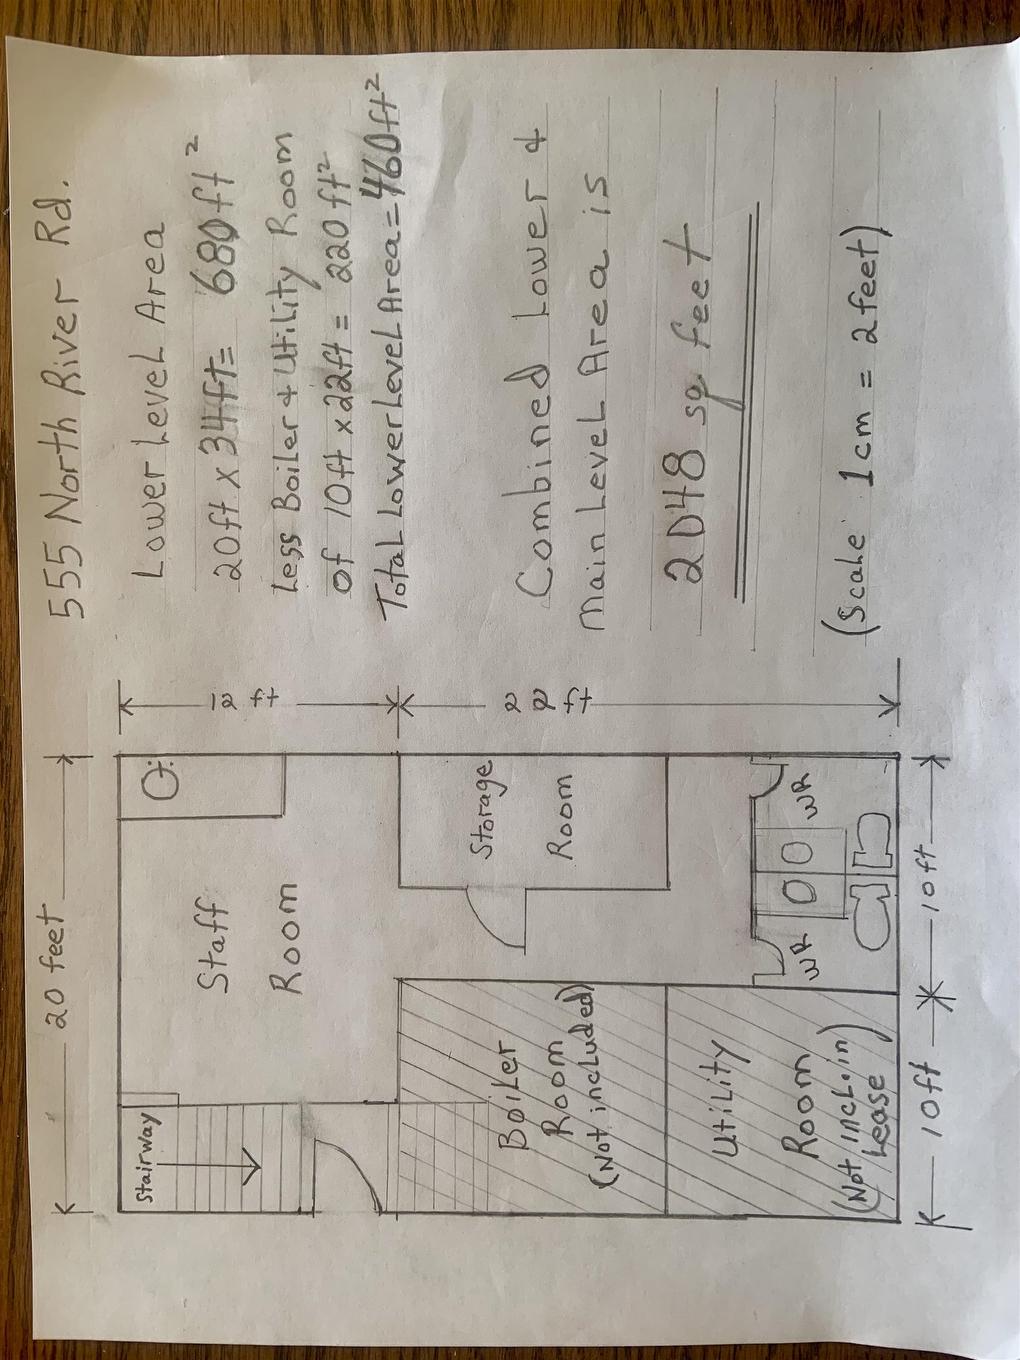 555 North River Rd.
Lower Level Area
20ft x 34ft = 680ft²
Less Boiler + Utility Room
of 10ft x 22ft = 220ft²
Total Lower Level Area = 460ft²
Combined Lower +
Main Level Area is
2048 sq feet
(Scale 1cm = 2feet)
20 feet
12
ft
22
ft
Stairway
Staff
Room
Storage
Room
Boiler
Room
(Not included)
Utility
Room
(Not incl. in
Lease)
WR
WR
10ft
10ft